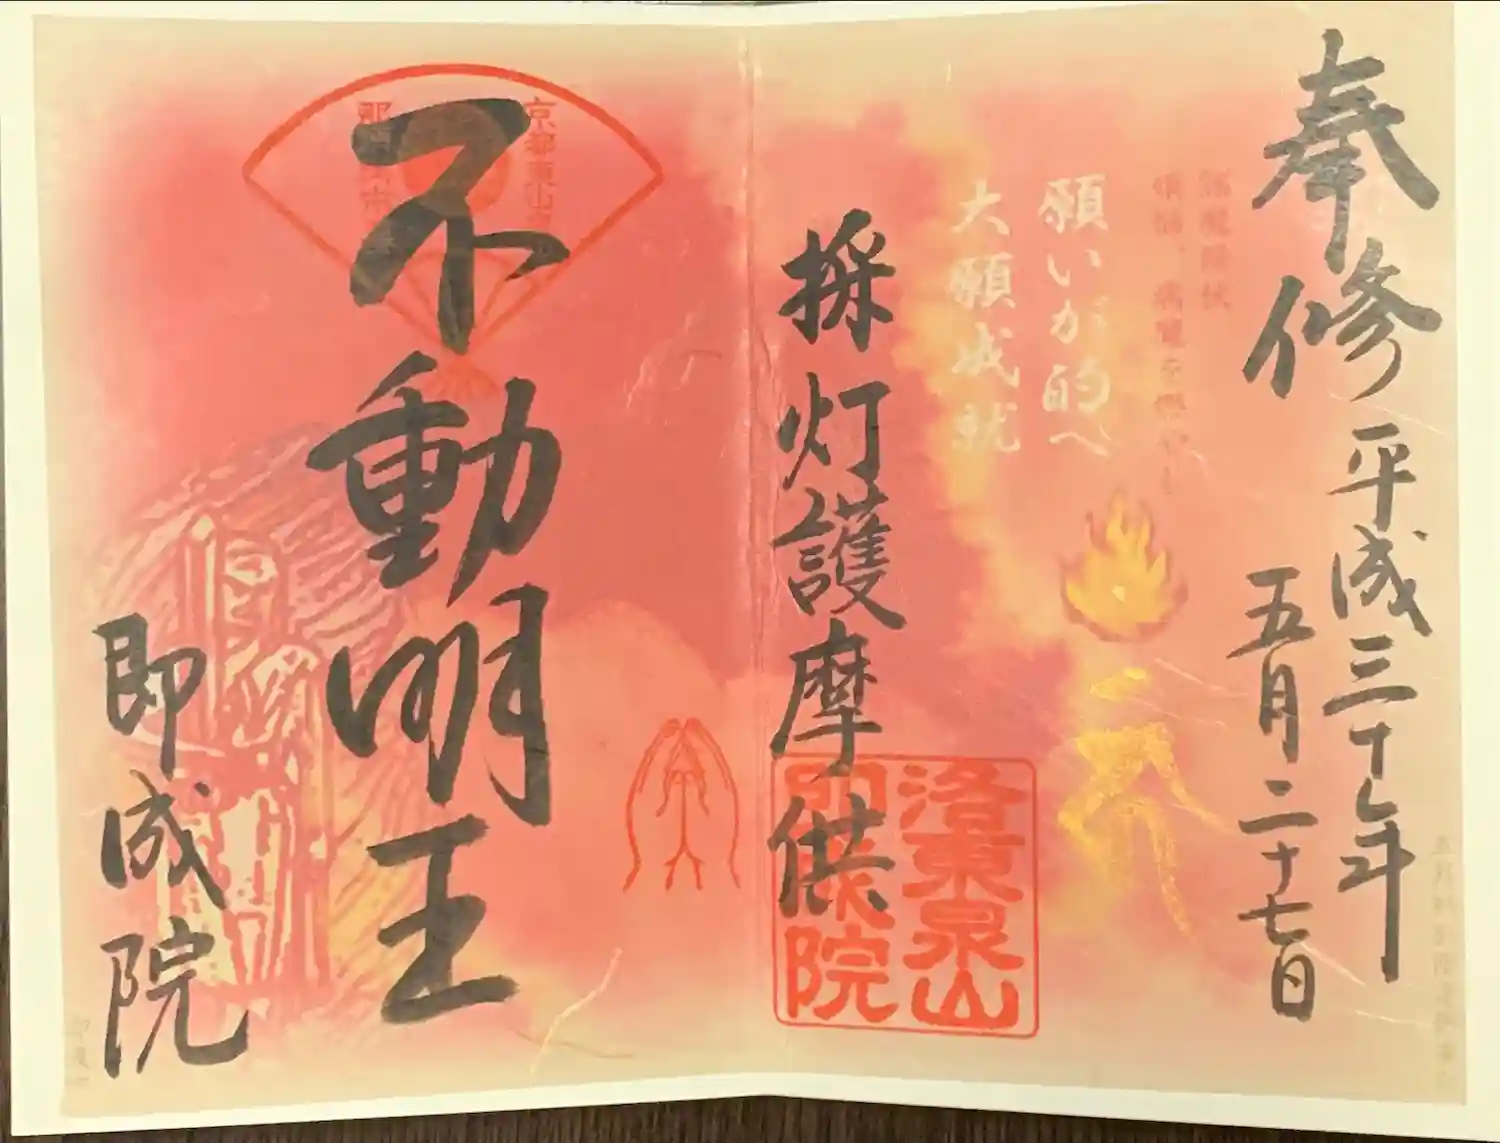 奉修
平成三十年
五月二十七日
願いが的へ
大願成就
採灯護摩供
洛東泉山
即成院
京都東山
不動明王
即成院